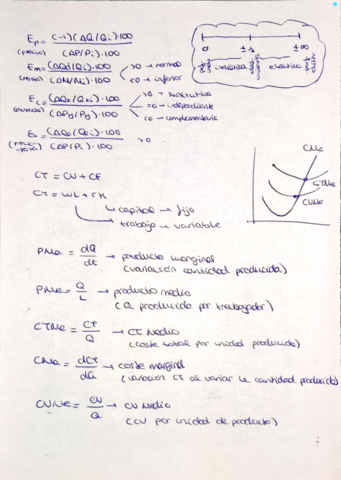 Ep = (-1)(ΔQ/Qi)·100 / (ΔP/Pi)·100
(precio)
0 ±1 ±∞
inelástica elástica
Em = (ΔQd/Qi)·100 / (ΔM/Mi)·100 >0 → normal
(renta) <0 → inferior
Ec = (ΔQx/Qxi)·100 / (ΔPy/Py)·100 >0 → sustitutivo
(cruzada) =0 → independiente
<0 → complementario
Eo = (ΔQo/Qoi)·100 / (ΔP/Pi)·100 >0
(precio oferta)
CT = CV + CF
CT = wL + rK
capital → fijo
trabajo → variable
CMa
CTMe
CVMe
PMa = dQ/dt → producto marginal
(variación cantidad producida)
PMe = Q/L → producto medio
(Q producida por trabajador)
CTMe = CT/Q → CT Medio
(coste total por unidad producida)
CMa = dCT/dQ → coste marginal
(variación CT al variar la cantidad producida)
CVMe = CV/Q → CV Medio
(CV por unidad de producto)